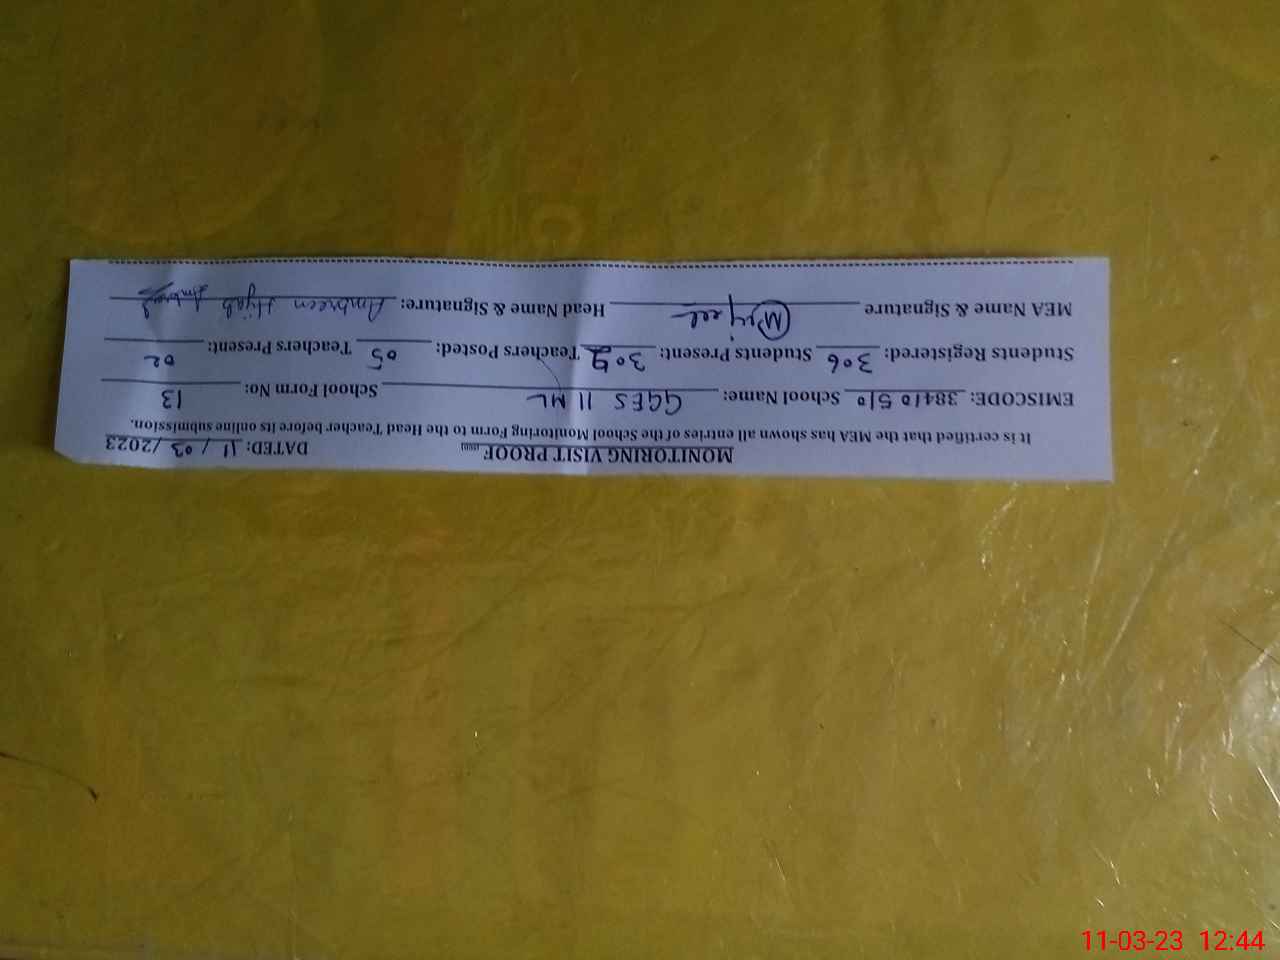 MONITORING VISIT PROOF DATED: 11 / 03 /2023
It is certified that the MEA has shown all entries of the School Monitoring Form to the Head Teacher before its online submission.
EMISCODE: 38410510 School Name: GGES 11 ML School Form No: 13
Students Registered: 306 Students Present: Teachers Posted: 05 Teachers Present: 02
MEA Name & Signature Head Name & Signature: Ambreen Hijab
11-03-23 12:44